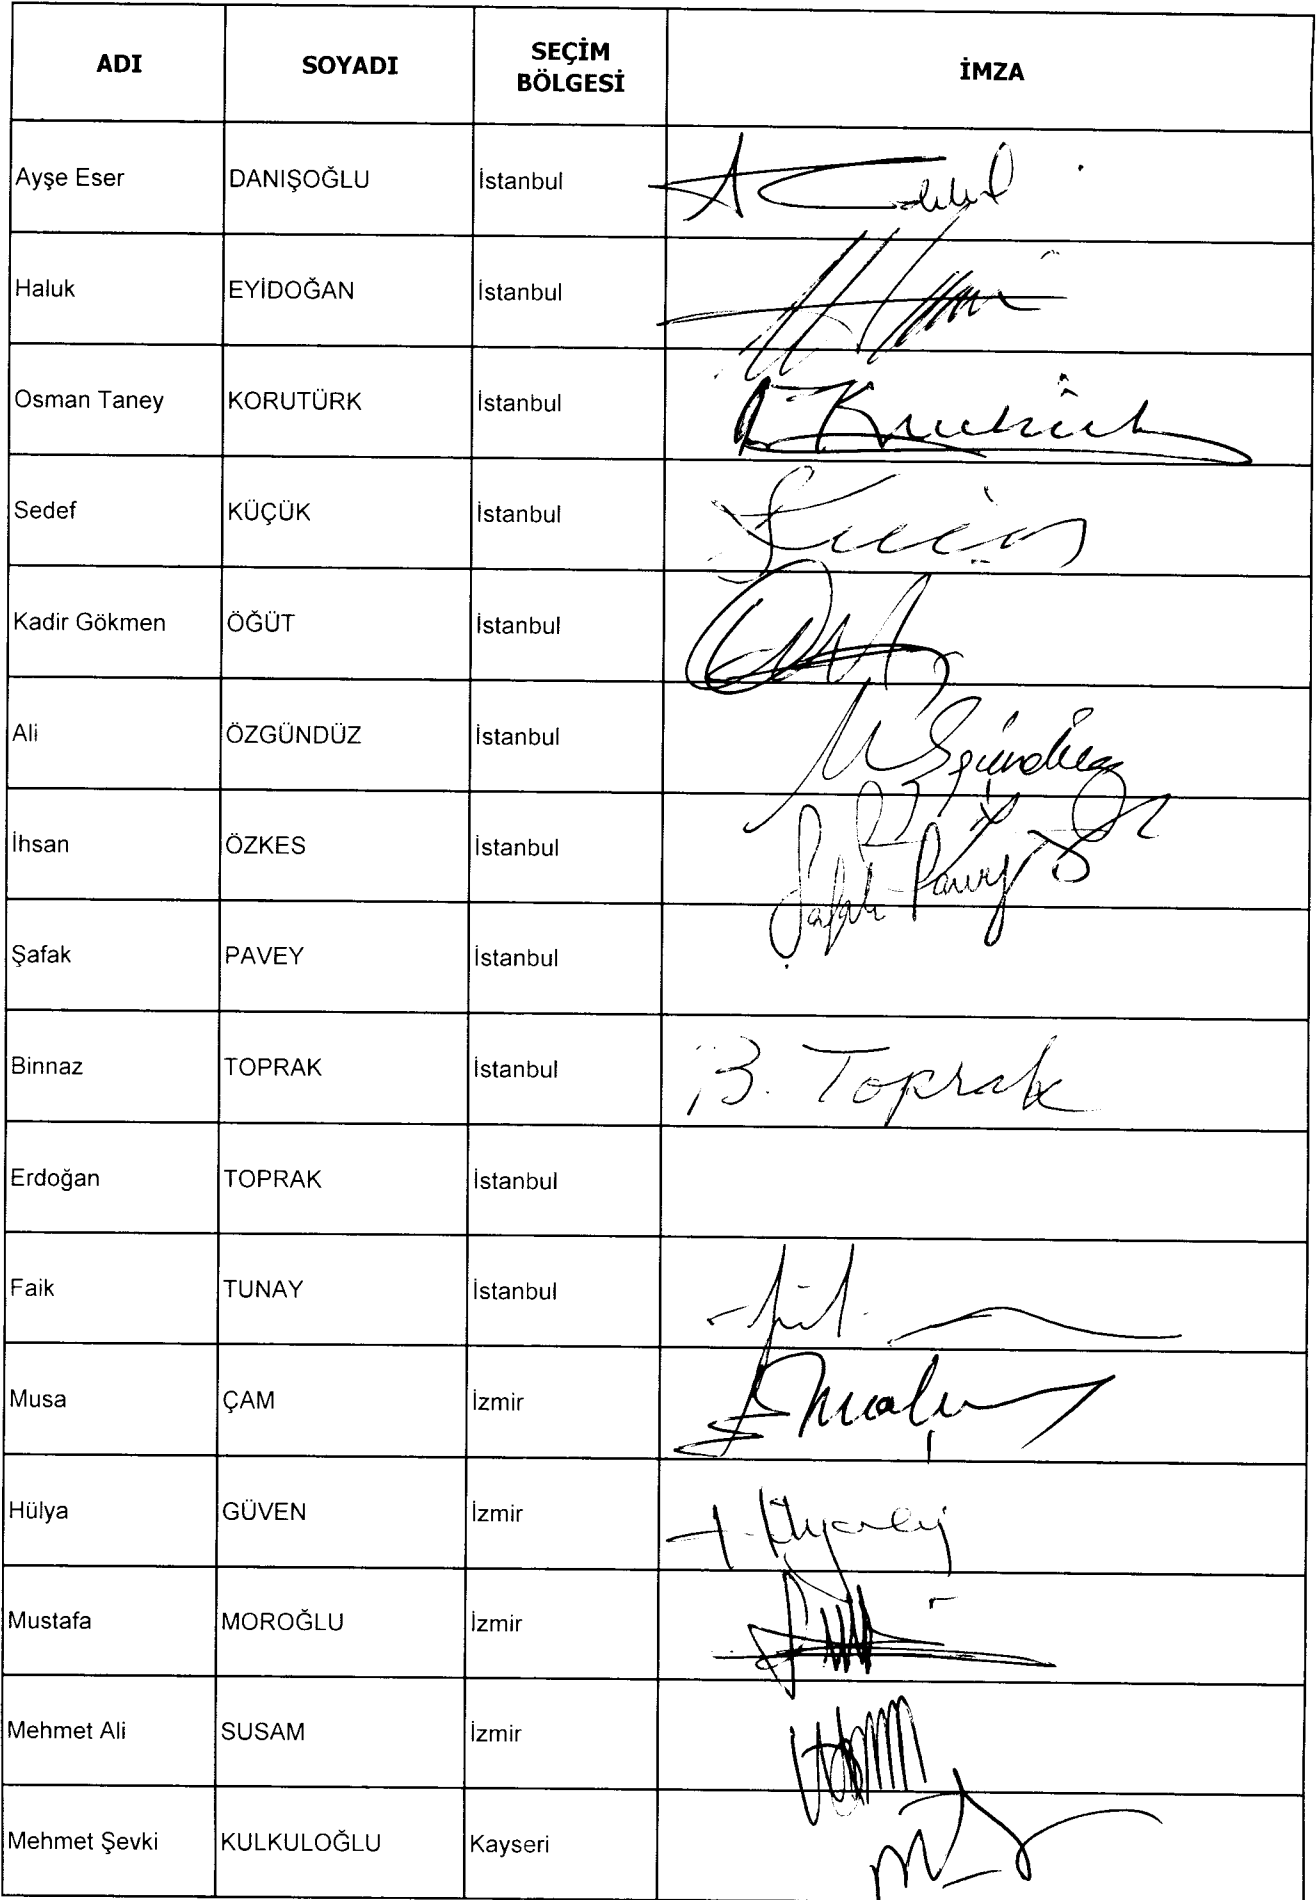 ADI SOYADI SEÇİM BÖLGESİ İMZA
Ayşe Eser DANIŞOĞLU İstanbul
Haluk EYİDOĞAN İstanbul
Osman Taney KORUTÜRK İstanbul
Sedef KÜÇÜK İstanbul
Kadir Gökmen ÖĞÜT İstanbul
Ali ÖZGÜNDÜZ İstanbul
İhsan ÖZKES İstanbul
Şafak PAVEY İstanbul
Binnaz TOPRAK İstanbul B. Toprak
Erdoğan TOPRAK İstanbul
Faik TUNAY İstanbul
Musa ÇAM İzmir
Hülya GÜVEN İzmir
Mustafa MOROĞLU İzmir
Mehmet Ali SUSAM İzmir
Mehmet Şevki KULKULOĞLU Kayseri